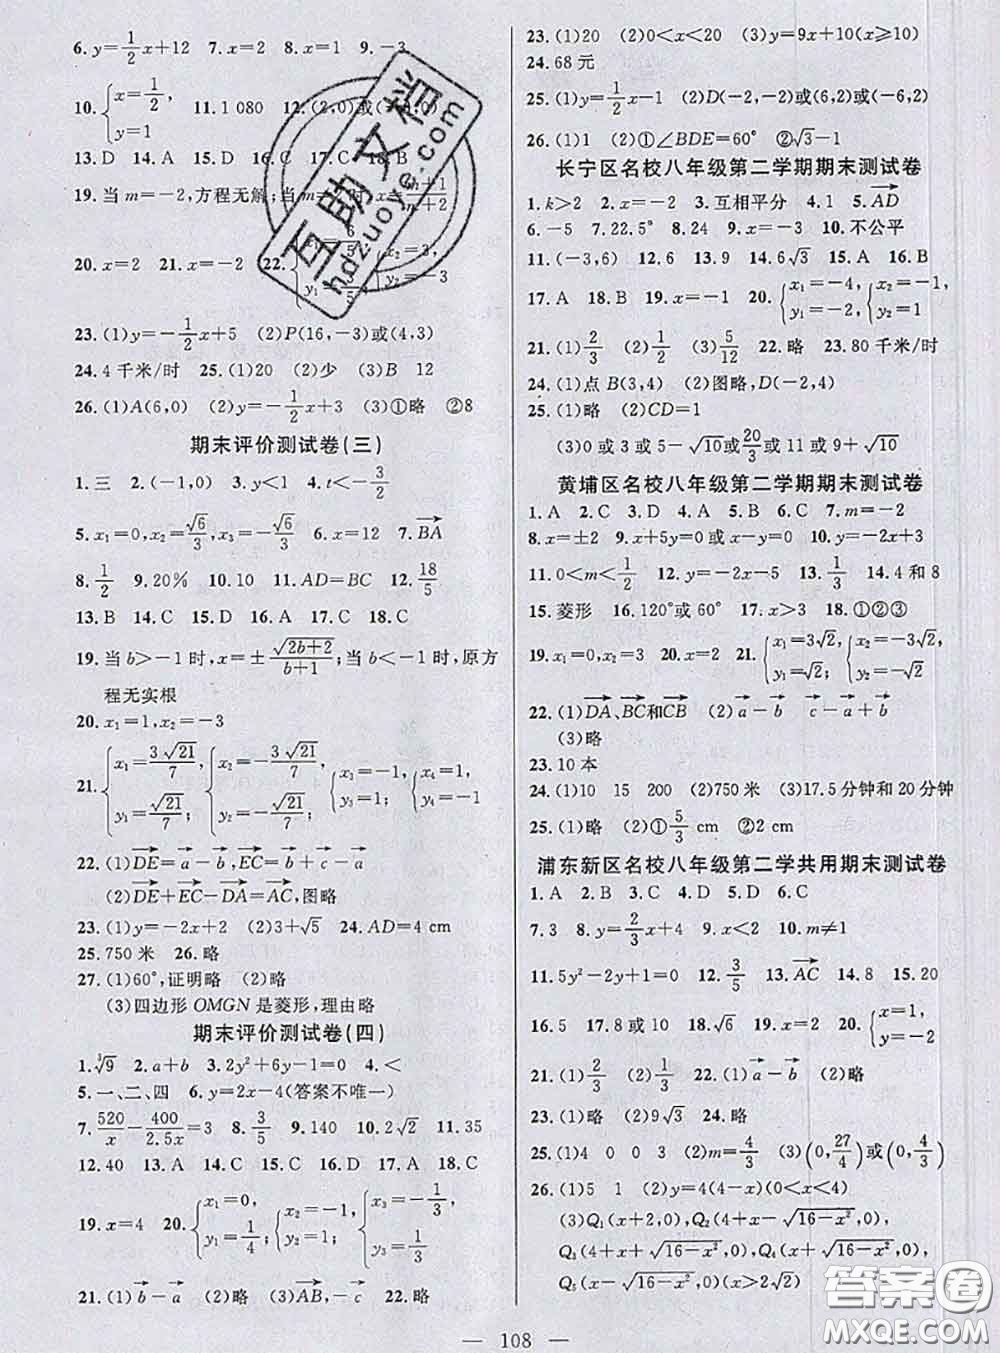 6. y=1/2x+12　7. x=2　8. x=1　9. −3
10. {x=1/2, y=1　11. 1 080　12. (2,0)或
13. D　14. A　15. D　16. A　17. A　18. B
19. 当 m=−2,方程无解;当
20. x=2　21. x=−2　22.
23. (1)y=−1/2x+5　(2)P(16,−3)或(4,3)
24. 4 千米/时　25. (1)20　(2)少　(3)B　12
26. (1)A(6,0)　(2)y=−1/2x+3　(3)①略　②8
期末评价测试卷(三)
1. 三　2. (−1,0)　3. y<1　4. t<−3/2
5. x₁=0, x₂=√6/3, x₃=−√6/3　6. x=12　7. BA→
8. 1/2　9. 20%　10. 10　11. AD=BC　12. 18/5
13. B　14. C　15. D　16. A　17. C　18. C
19. 当 b>−1 时, x=±√(2b+2)/(b+1);当 b<−1 时,原方
程无实根
20. x₁=1, x₂=−3
21. {x₁=3√21/7, y₁=√21/7; {x₂=−3√21/7, y₂=−√21/7; {x₃=1, y₃=−1; {x₄=−1, y₄=1
22. (1)DE→=a→−b→, EC→=b→+c→−a→
(2)DE→+EC→−DA→=AC→,图略
23. (1)y=−2x+2　(2)3+√5　24. AD=4 cm
25. 750 米　26. 略
27. (1)60°,证明略　(2)略
(3)四边形 OMGN 是菱形,理由略
期末评价测试卷(四)
1. ³√9　2. a+b　3. 2y²+6y−1=0　4. <
5. 一、二、四　6. y=2x−4(答案不唯一)
7. 520/x−400/2.5x=3　8. 3/5　9. 140　10. 2√2　11. 35
12. 40　13. A　14. A　15. C　16. D　17. A　18. C
19. x=4　20. {x₁=0, y₁=1/4; {x₂=−1, y₂=−1; {x₃=−1/3, y₃=1/3
21. (1)b→−a→　(2)略　(3)AB→,−c→　22. 略
23. (1)20　(2)0<x<20　(3)y=9x+10(x⩾10)
24. 68 元
25. (1)y=1/2x−1　(2)D(−2,−2)或(6,2)或(−6,2)
26. (1)1　(2)①∠BDE=60°　②√3−1
长宁区名校八年级第二学期期末测试卷
1. k>2　2. x=−2　3. 互相平分　4. 1　5. AD→
6. −5　7. 22.5°　8. 24　9. x=−1　10. 不公平
11. (−3,6)　12. 6　13. 9　14. 6√3　15. A　16. B
17. A　18. B　19. x=−1　20. {x₁=−4, y₁=−2; {x₂=−1, y₂=1
21. (1)2/3　(2)1/2　(3)5/12　22. 略　23. 80 千米/时
24. (1)点 B(3,4)　(2)图略, D(−2,4)
25. (1)略　(2)CD=1
(3)0 或 3 或 5−√10或20/3或 11 或 9+√10
黄埔区名校八年级第二学期期末测试卷
1. A　2. C　3. D　4. A　5. C　6. C　7. m=−2
8. x=±2　9. x+5y=0 或 x−y=0　10. y=−2x+3
11. 0<m<1/2　12. y=−2x−5　13. 1/3　14. 4 和 8
15. 菱形　16. 120°或 60°　17. x>3　18. ①②③
19. x₁=0, x₂=3　20. x=2　21. {x₁=3√2, y₁=√2; {x₂=−3√2, y₂=−√2
22. (1)DA→、BC→和CB→　(2)a→−b→　c→−a→+b→
(3)略
23. 10 本
24. (1)10　15　200　(2)750 米　(3)17.5 分钟和 20 分钟
25. (1)略　(2)①5/3 cm　②2 cm
浦东新区名校八年级第二学共用期末测试卷
1. A　2. B　3. C　4. D　5. D　6. C
7. 3　8. y=2/3x+4　9. x<2　10. m≠1
11. 5y²−2y+1=0　12. 3/5　13. AC→　14. 8　15. 20
16. 5　17. 8 或 10　18. √6　19. x=2　20. {x=1, y=−2
21. (1)2/3　(2)1/3　22. (1)a→−b→　(2)略
23. (1)略　(2)9√3　24. 略
25. (1)4　0　0　3　(2)m=4/3　(3)(0,27/4)或(0,4/3)
26. (1)5　1　(2)y=4(4−x)(0<x<4)
(3)Q₁(x+2,0), Q₂(4+x−√(16−x²),0),
Q₃(4+x+√(16−x²),0), Q₄(x+√(16−x²),0),
Q₅(x−√(16−x²),0)(x>2√2)
— 108 —
互助文档
hdzuoye.com
答案圈
MXQE.COM